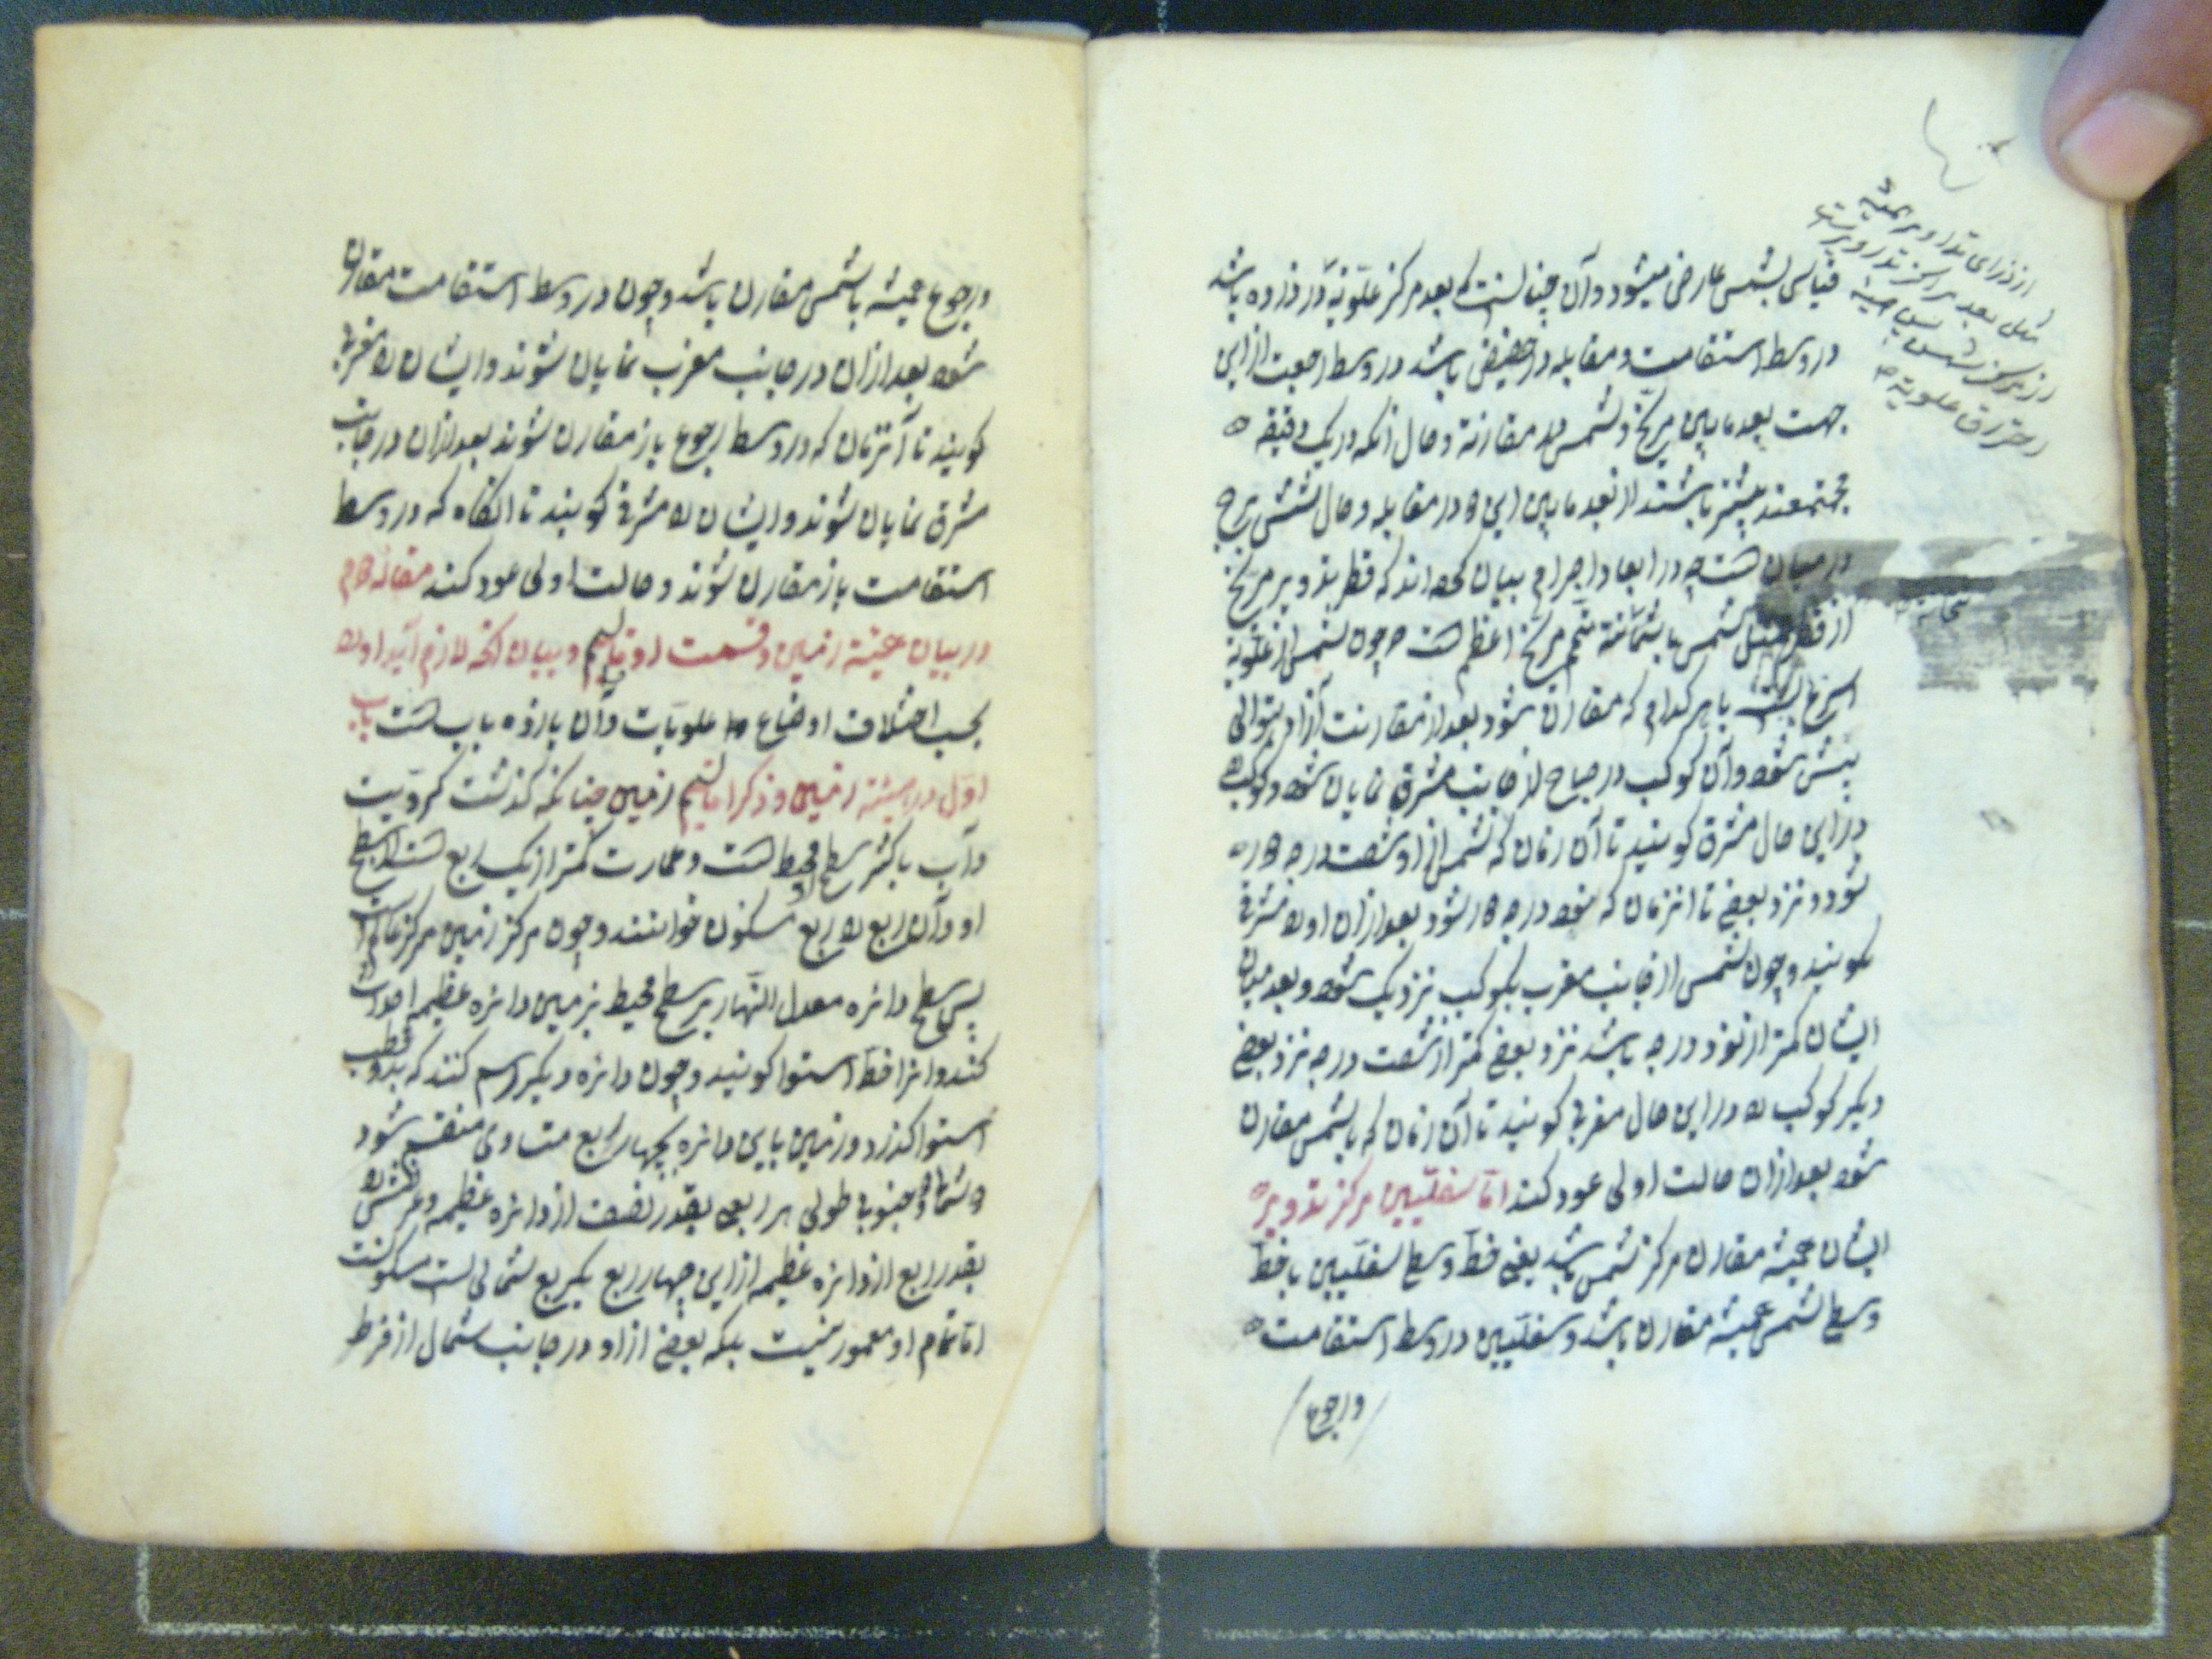 قیاس بشمس عارض میشود و آن چنانست که بعد مرکز علویه در ذروه باشد
در وسط استقامت و مقابله در حضیض باشد در وسط رجعت از این
جهت بعد مابین مریخ و شمس در مقارنة و حال آنکه در یک دقیقه
مجتمعند بیشتر باشند از بعد مابین این ها در مقابله و حال شش برج
در میان هست چه در ابعاد و اجرام بیان کرده اند که قطر تدویر مریخ
از قطر ممثل شمس با متمم مریخ اعظم هست و چون شمس از علویة
اسرع است با هر کدام که مقارن شود بعد از مقارنت از او بتوالی
پیش شود و آن کوکب در صباح از جانب مشرق نمایان شود و کوکب را
در این حال مشرق کویند تا آن زمان که شمس از او شصت درجه دور
شود و نزد بعضی تا انزمان که نود درجه دور شود بعد از ان او را مشرقی
نکویند و چون شمس از جانب مغرب بکوکب نزدیک شود و بعد میان
ایشان کمتر از نود درجه باشد نزد بعضی کمتر از شصت درجه نزد بعضی
دیکر کوکب را در این حال مغربی کویند تا آن زمان که با شمس مقارن
شود بعد از ان حالت اولی عود کند اما سفلیین مرکز تدویر
ایشان همیشه مقارن مرکز شمس باشد یعنی خط وسط سفلیین با خط
وسط شمس همیشه مقارن باشد و سفلیین در وسط استقامت
ورجوع
از ذرای تداویر همیشه
مثل بعد مرکز تدویر است
از مرکز شمس پس همیشه
احتراق علویة
ورجوع همیشه با شمس مقارن باشد و چون در وسط استقامت مقارن
شود بعد از ان در جانب مغرب نمایان شوند و ایشان را مغربی
کویند تا آنزمان که در وسط رجوع باز مقارن شوند بعد از ان در جانب
مشرق نمایان شوند و ایشان را مشرقی کویند تا انکاه که در وسط
استقامت باز مقارن شوند و حالت اولی عود کند مقاله دوم
در بیان هیئة زمین و قسمت او باقالیم و بیان انچه لازم آید او را
بحسب اختلاف اوضاع علویات و آن یازده باب هست باب
اول در هیئة زمین و ذکر اقالیم زمین چنانکه کذشت کرویت
و آب باکثر سطح او محیط هست و عمارت کمتر از یک ربع هست از سطح
او و آن ربع را ربع مسکون خوانند و چون مرکز زمین مرکز عالم است
پس سطح دائره معدل النهار بر سطح محیط بزمین دائره عظیمه احداث
کند و انرا خط استوا کویند و چون دائره دیکر رسم کنند که بدو قطب
استوا کذرد و زمین باین دائره بچهار ربع متساوی منقسم شود
دو شمالی و دو جنوبی طول هر ربعی بقدر نصف از دائره عظیمه و عرضش
بقدر ربع از دائره عظیمه از این چهار ربع یکربع شمالی است مسکونست
اما تمام او معمور نیست بلکه بعضی از او در جانب شمال از فرط